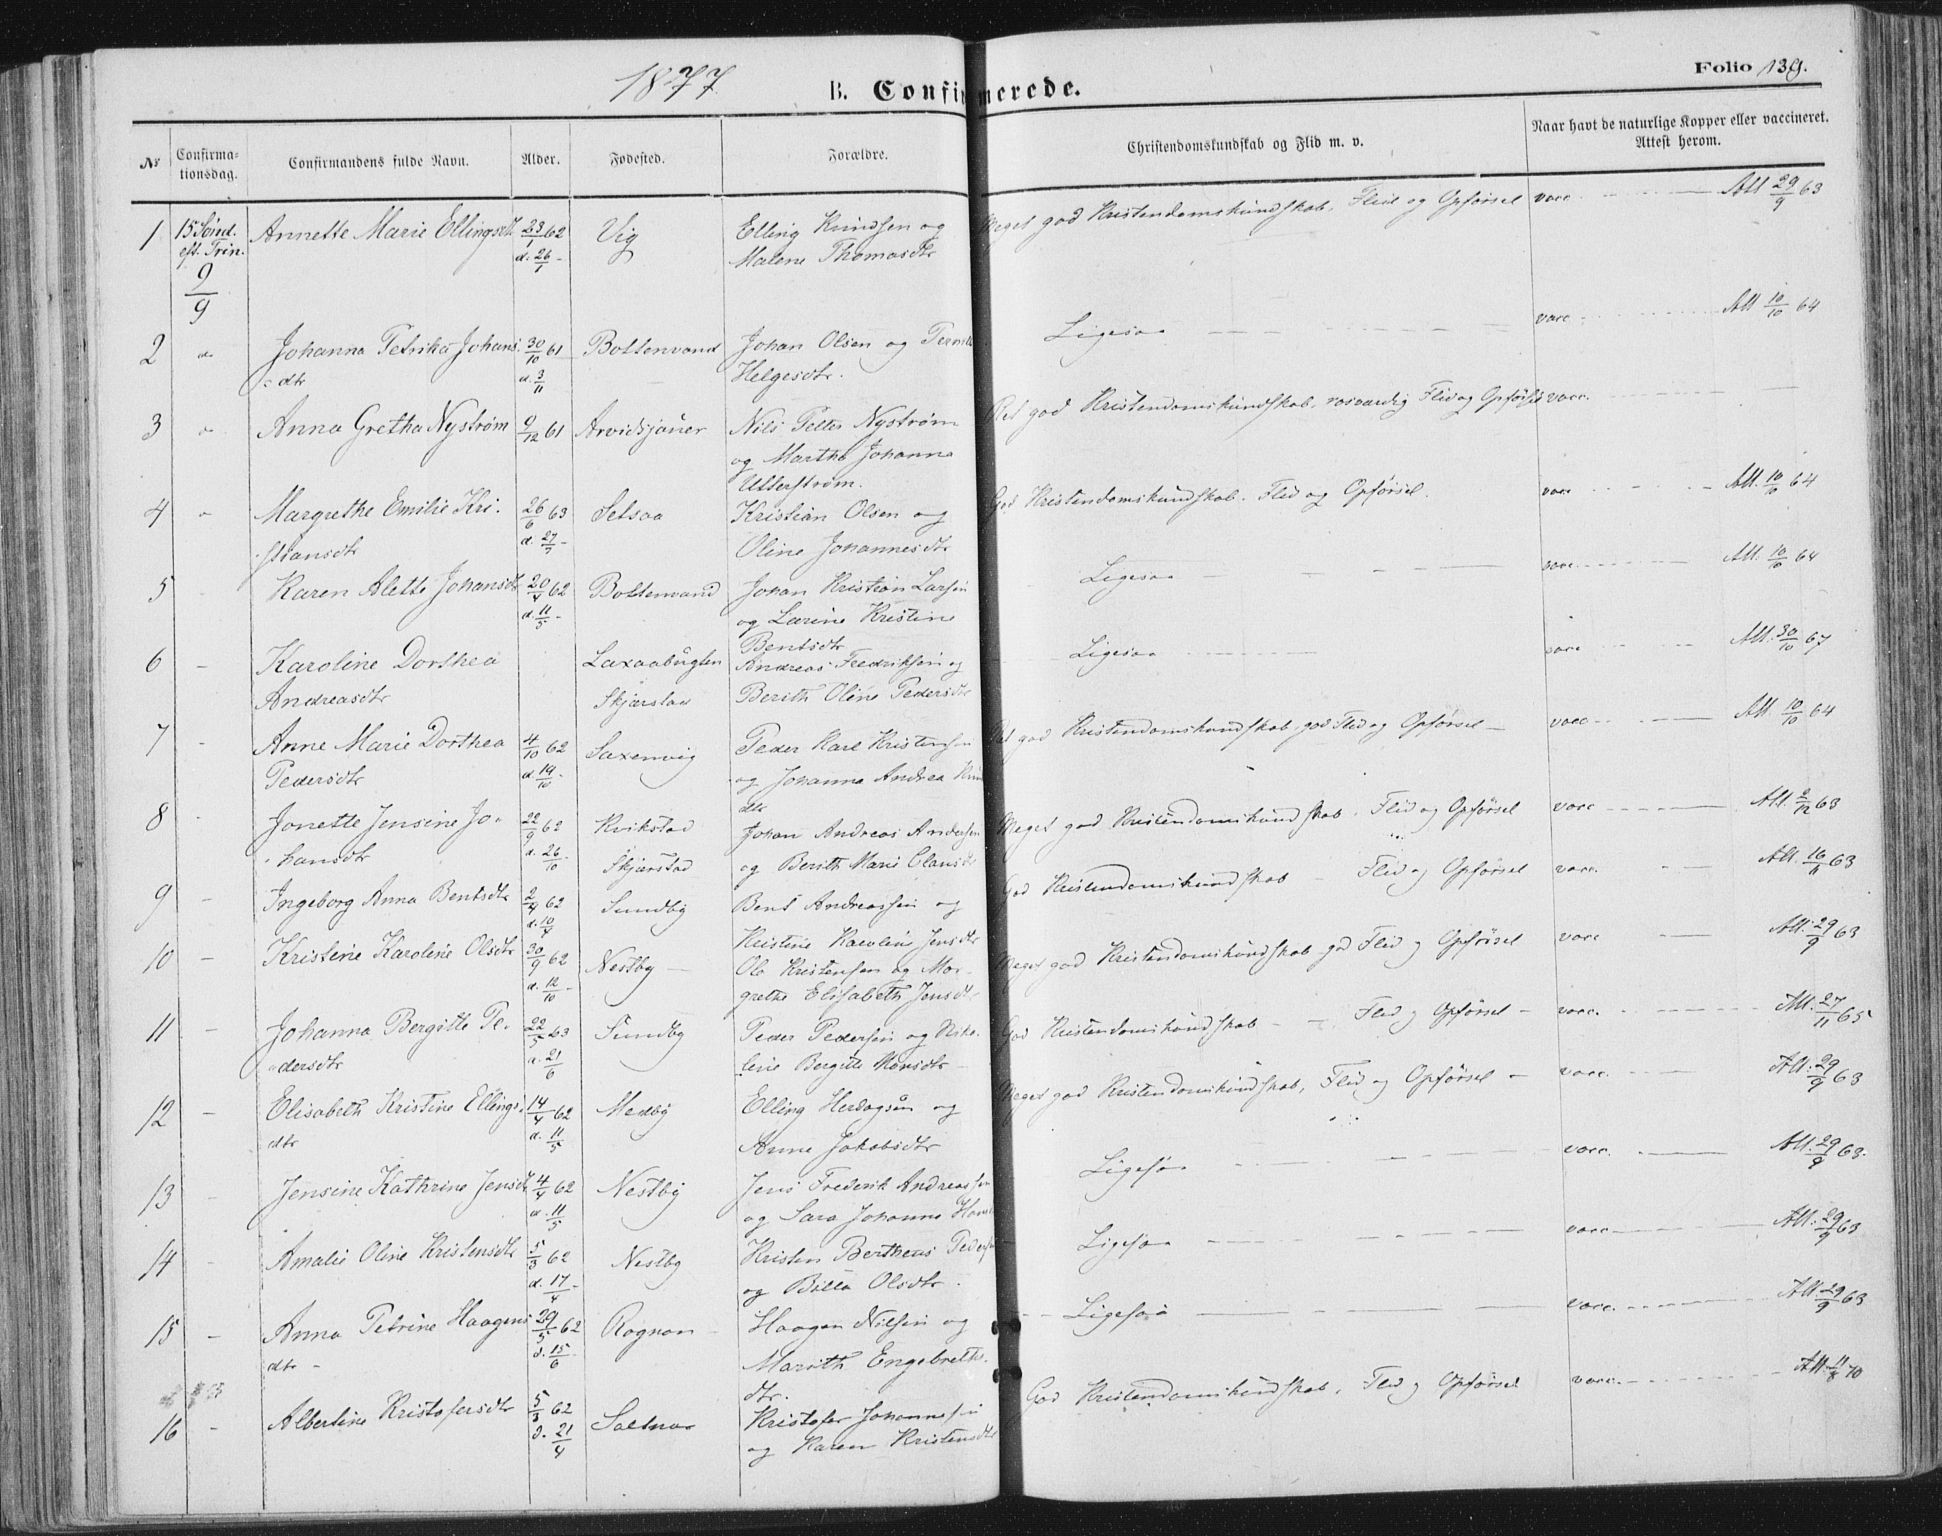 1877
B. Confirmerede.
Folio 139.
Nr
Confirma-
tionsdag.
Confirmandens fulde Navn.
Alder.
Fødested.
Forældre.
Christendomskundskab og Flid m. v.
Naar havt de naturlige Kopper eller vaccineret.
Attest herom.
1 15 Sønd. Annette Marie Ellingsdt 23/1 62 Vig Elling Knudsen og Meget god Kristendomskundskab, Flid og Opførsel vacc. Att 29/9 63
eft. Trin. d. 26/1 - Malene Thomasdtr
9/9
2 " Johanna Petrika Johans- 30/10 61 Bottenvand Johan Olsen og Ligesaa vacc. Att 10/10 64
dtr d. 3/11 Helgesdtr.
3 " Anna Gretha Nystrøm 9/12 61 Arvidsjauer Nils Petter Nystrøm Ret god Kristendomskundskab, rosværdig Flid og Opførsel vacc.
og Martha Johanna
Utterstrøm.
4 " Margrethe Emilie Kri- 26/6 63 Setsaa Kristian Olsen og God Kristendomskundskab. Flid og Opførsel. vacc Att. 10/10 64
stiansdtr d. 27/7 - Oline Johannesdtr
5 - Karen Alette Johansdt 20/4 62 Bottenvand Johan Kristian Larsen Ligesaa vacc. Att. 10/10 64
d. 11/5 - og Lærine Kristine
Bentsdtr
6 - Karoline Dorthea Laxaabugten Andreas Fredriksen og Ligesaa vacc Att. 30/10 67
Andreasdtr Skjærstad Berith Oline Pedersdtr
7 - Anne Marie Dorthea 4/10 62 Saxenvig Peder Karl Kristensen Ret god Kristendomskundskab, god Flid og Opførsel - vacc Att. 10/10 64
Pedersdtr d. 19/10 - og Johanna Andrea
dtr
8 - Jonette Jensine Jo- 22/9 62 Kvikstad Johan Andreas Andersen Meget god Kristendomskundskab, Flid og Opførsel vacc Att. 2/12 63
hansdtr d. 26/10 - Skjærstad og Berith Marie Clausdt
9 - Ingeborg Anna Bentsdtr 2/4 62 Sundby Bent Andreassen og God Kristendomskundskab - Flid og Opførsel vacc. Att. 16/11 63
Kristine Karoline Jensdtr
10 - Kristine Karoline Olsdtr 30/9 62 Nestby - Ole Kristensen og Mar- Meget god Kristendomskundskab god Flid og Opførsel vacc Att. 29/9 63
d. 12/10 - grethe Elisabeth Jensdtr
11 - Johanna Bergitte Pe- 22/5 63 Sundby Peder Pedersen og Niko- God Kristendomskundskab - Flid og Opførsel - vacc. Att. 27/11 65
dersdtr d. 21/6 line Bergitte Monsdtr
12 - Elisabeth Kristine Ellings- 14/4 62 Medby Elling Herdagsen og Meget god Kristendomskundskab, Flid og Opførsel - vacc. Att. 29/9 63
dtr d. 11/5 Anne Jakobsdtr
13 - Jensine Kathrine Jensdt 4/4 62 Nestby Jens Frederik Andreassen Ligesaa vacc. Att. 29/9 63.
d. 11/5 og Sara Johanne
14 - Amalie Oline Kristensdtr 5/3 62 Nestby Kristen Bertheus Pedersen Ligesaa vacc. Att. 29/9 63
d. 17/4 - og Billa Olsdtr.
15 - Anna Petrine Haagens- 29/5 62 Rognan - Haagen Nilsen og Ligesaa vacc. Att. 29/9 63
dtr - d. 15/6 Marith Engebrets-
dtr.
16 - Albertine Kristofersdtr 5/3 62 Saltnes Kristofer Johannesen God Kristendomskundskab, Flid og Opførsel vacc. Att. 11/8 70
d. 21/4 og Karen Kristensdtr